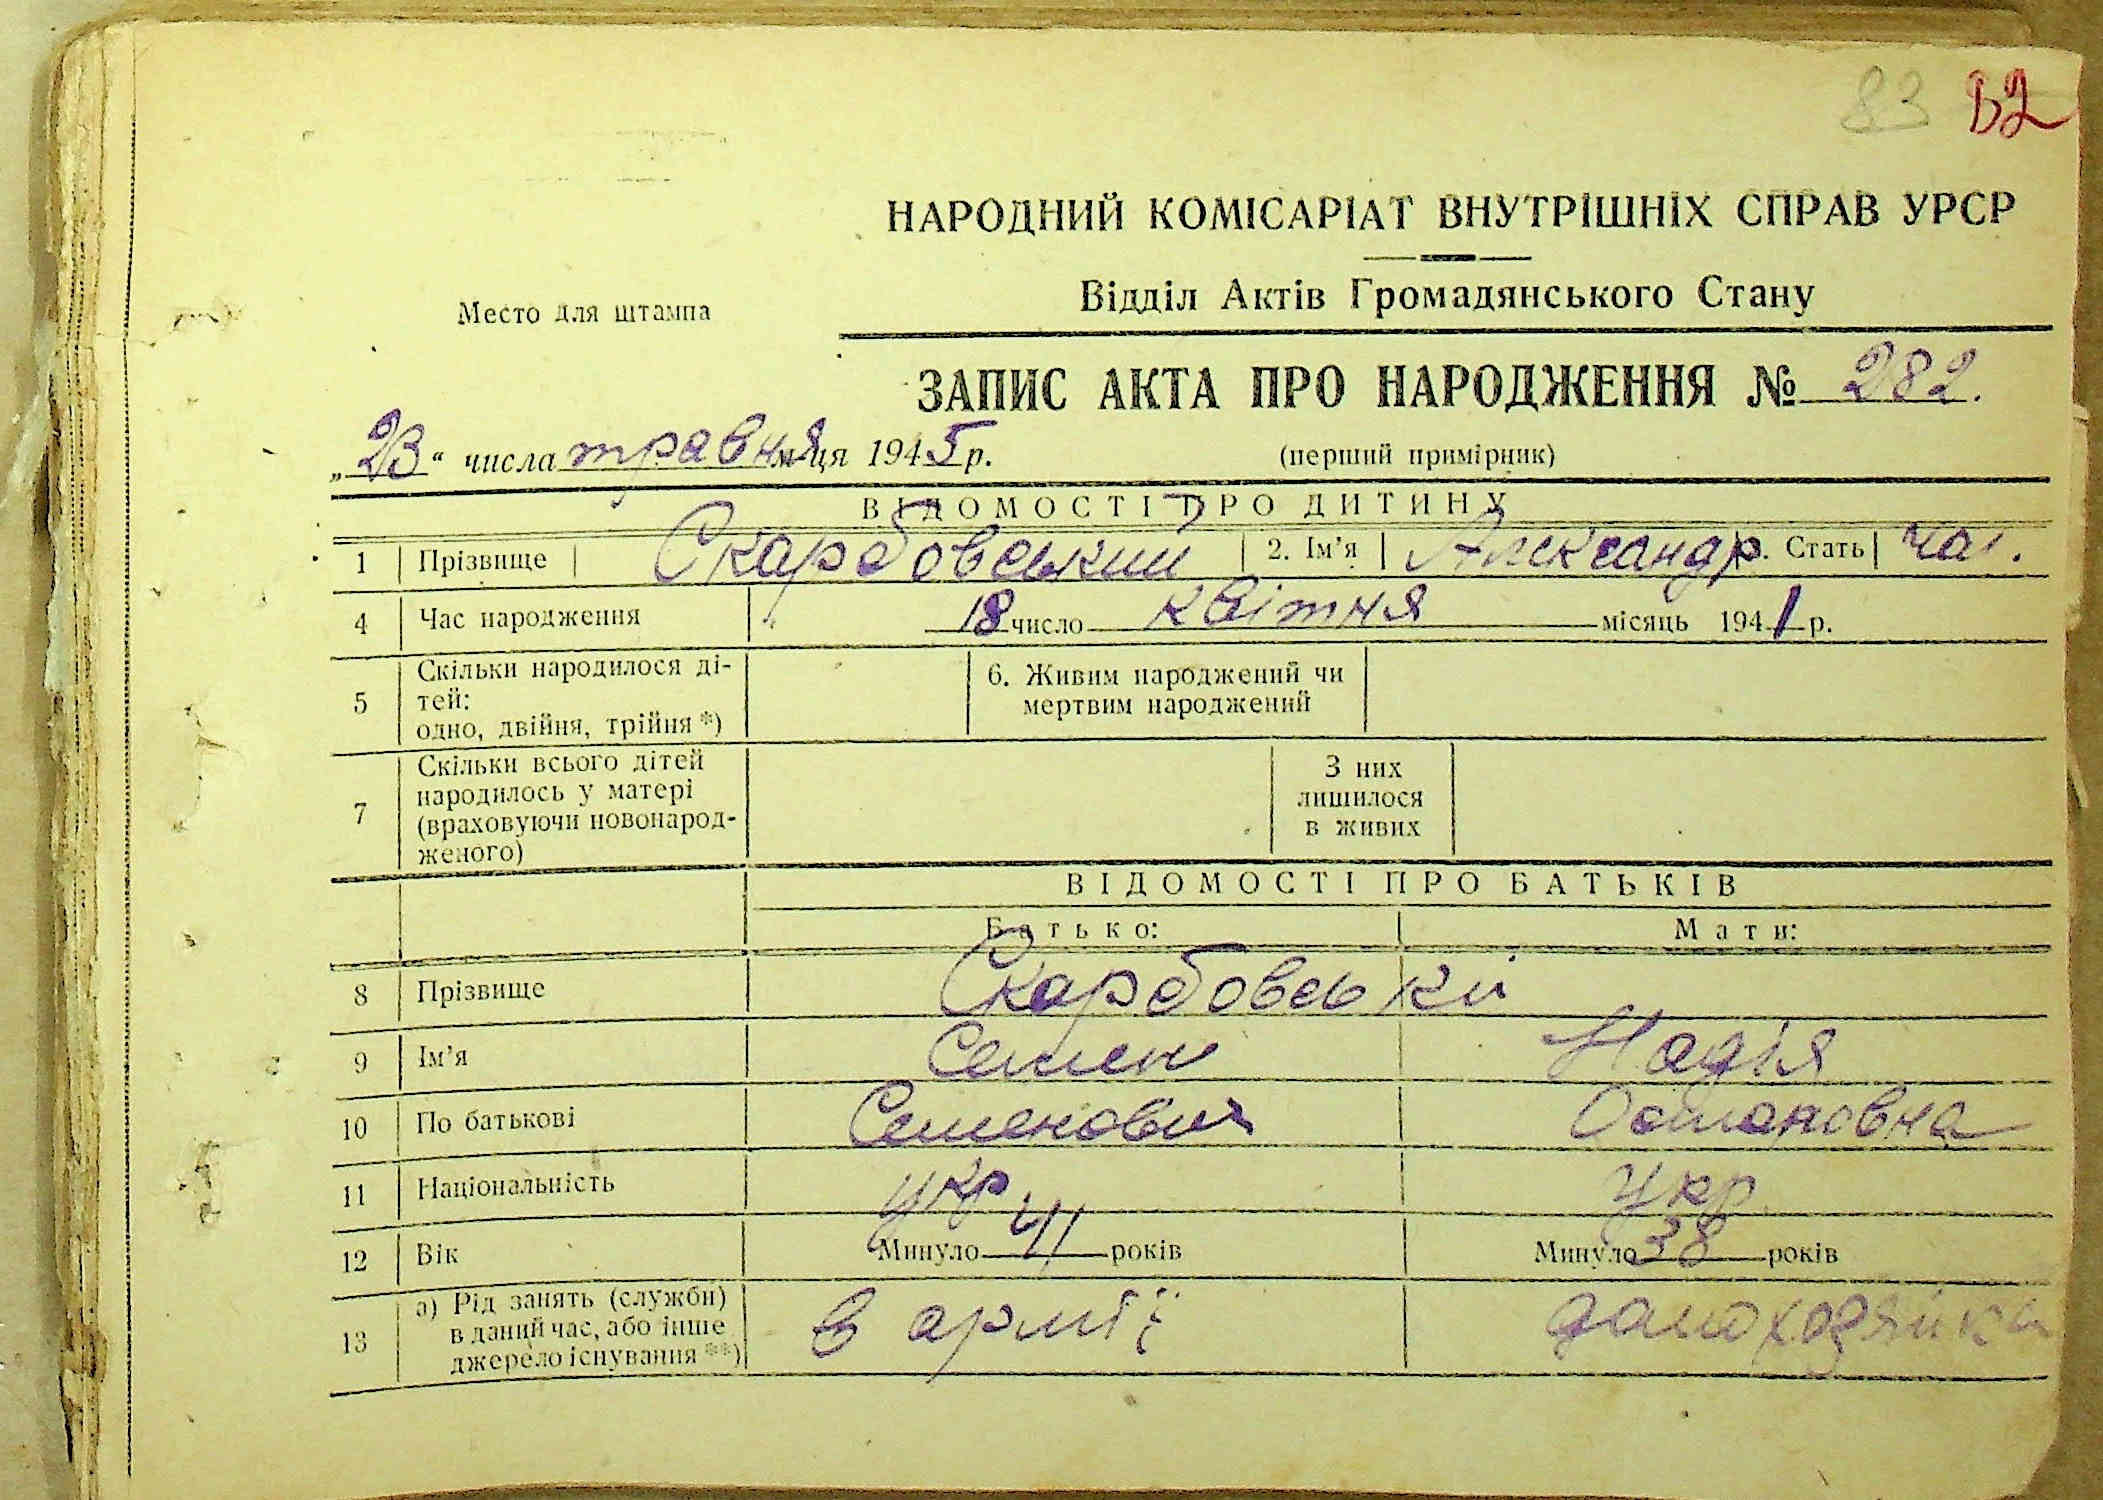 83 В2
НАРОДНИЙ КОМІСАРІАТ ВНУТРІШНІХ СПРАВ УРСР
Відділ Актів Громадянського Стану
Место для штампа
ЗАПИС АКТА ПРО НАРОДЖЕННЯ № 282.
„23“ числа травня м-ця 1945 р. (перший примірник)
ВІДОМОСТІ ПРО ДИТИНУ
1 Прізвище Скарбовський 2. Ім'я Александр 3. Стать чол.
4 Час народження 18 число квітня місяць 1941 р.
5 Скільки народилося ді-
тей:
одно, двійня, трійня *)
6. Живим народжений чи
мертвим народжений
7 Скільки всього дітей
народилось у матері
(враховуючи новонарод-
женого)
З них
лишилося
в живих
ВІДОМОСТІ ПРО БАТЬКІВ
Батько: Мати:
8 Прізвище Скарбовські
9 Ім'я Семен Надія
10 По батькові Семенович Остаповна
11 Національність укр укр
12 Вік Минуло 41 років Минуло 38 років
13 а) Рід занять (служби)
в даний час, або інше
джерело існування **)
в армії домохозяйка